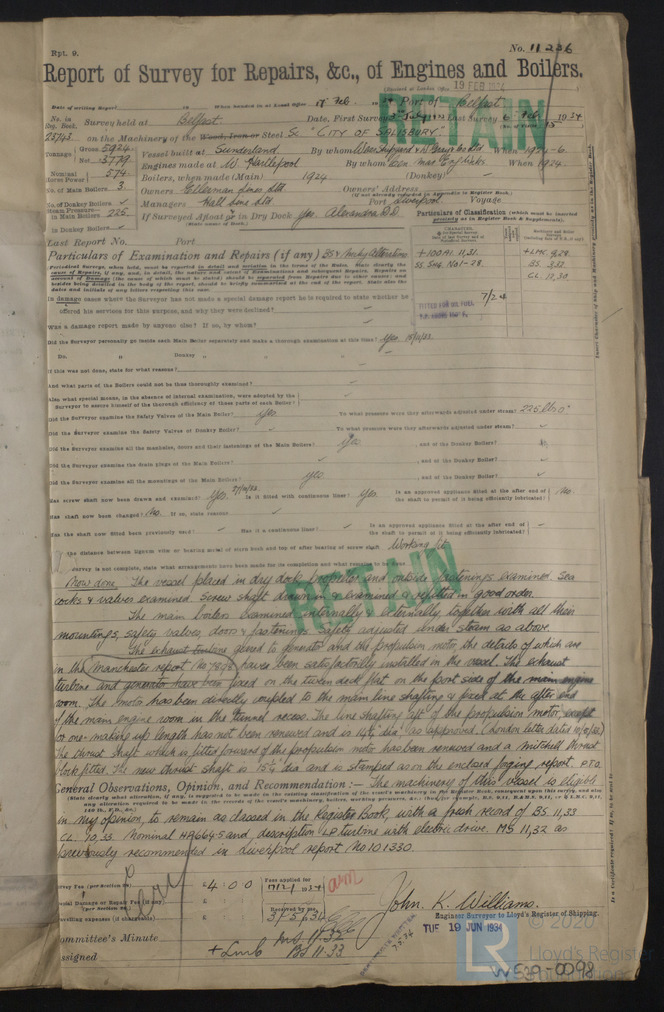 Rpt. 9.
No. 11236
Report of Survey for Repairs, &c., of Engines and Boilers.
(Received at London Office 19 FEB 1934
Date of writing Report 19 When handed in at Local Office 17 Feb. 1934 Port of Belfast
No. in Reg. Book. Survey held at Belfast Date, First Survey Last Survey 6 Feb 1934
25743 on the Machinery of the Wood, Iron or Steel Sc "CITY OF SALISBURY"
RETAIN
Tonnage Gross 5924 Net 3779
Vessel built at Sunderland By whom When 1924-6
Engines made at W. Hartlepool By whom When 1924
Nominal Horse Power 574
Boilers, when made (Main) 1924 (Donkey)
No. of Main Boilers 3
Owners Ellerman Lines Ltd Owners' Address
(if not already recorded in Appendix to Register Book.)
No. of Donkey Boilers
Managers Hall Line Ltd Port Liverpool Voyage
Steam Pressure in Main Boilers 225
in Donkey Boilers
If Surveyed Afloat or in Dry Dock Yes. Alexandra D.D.
(State name of Dock.)
Particulars of Classification (which must be inserted precisely as in Register Book & Supplements).
Last Report No. Port
Particulars of Examination and Repairs (if any)
+100A1 11,31
SS Sng No1-28
+LMC 9,28
BS 3,32
CL 11,30
FITTED FOR OIL FUEL
7/24
In damage cases where the Surveyor has not made a special damage report he is required to state whether he
offered his services for this purpose, and why they were declined?
Was a damage report made by anyone else? If so, by whom?
Did the Surveyor personally go inside each Main Boiler separately and make a thorough examination at this time? Yes
Do. " Donkey " " " "
If this was not done, state for what reasons?
And what parts of the Boilers could not be thus thoroughly examined?
Also what special means, in the absence of internal examination, were adopted by the
Surveyor to assure himself of the thorough efficiency of those parts of each Boiler?
Did the Surveyor examine the Safety Valves of the Main Boiler? Yes To what pressure were they afterwards adjusted under steam? 225 lbs
Did the Surveyor examine the Safety Valves of Donkey Boiler? To what pressure were they afterwards adjusted under steam?
Did the Surveyor examine all the manholes, doors and their fastenings of the Main Boilers? Yes , and of the Donkey Boiler?
Did the Surveyor examine the drain plugs of the Main Boilers? , and of the Donkey Boiler?
Did the Surveyor examine all the mountings of the Main Boilers? Yes , and of the Donkey Boiler?
Has screw shaft now been drawn and examined? Yes Is it fitted with continuous liner? Yes Is an approved appliance fitted at the after end of the shaft to permit of it being efficiently lubricated? No.
Has shaft now been changed? No. If so, state reasons
Has the shaft now fitted been previously used? Has it a continuous liner? Is an approved appliance fitted at the after end of the shaft to permit of it being efficiently lubricated?
the distance between lignum vitæ or bearing metal of stern bush and top of after bearing of screw shaft Working fit
Survey is not complete, state what arrangements have been made for its completion and what remains
RETAIN
Now done, The vessel placed in dry dock, propeller and outside fastenings examined. Sea
cocks & valves examined. Screw shaft drawn in & examined & refitted in good order.
The main boilers examined internally & externally, together with all their
mountings, safety valves, doors & fastenings. Safeties adjusted under steam as above.
The exhaust turbine geared to generator and the propulsion motor, the details of which are
in the Manchester report have been satisfactorily installed in the vessel. The exhaust
turbine and generator have been fixed on the tween deck flat on the port side of the main engine
room. The motor has been directly coupled to the main line shafting & fixed at the after end
of the main engine room in the tunnel recess. The line shafting aft of the propulsion motor, except
for one making up length has not been renewed and is 14½ dia as approved. (London letter dated
The thrust shaft which is fitted forward of the propulsion motor has been renewed and a Mitchell thrust
block fitted. The new thrust shaft is 15¼ dia and is stamped as on the enclosed forging report. P.T.O.
General Observations, Opinion, and Recommendation:— The machinery of this vessel is eligible
in my opinion, to remain as classed in the Register Book, with a fresh record of BS 11,33
CL 10,33. Nominal HP 664.5 and description LP turbine with electric drive. MS 11,32 as
previously recommended in Liverpool report No 101330.
Survey Fee £4 : 0 : 0
Fees applied for 1934
Special Damage or Repair Fee (if any)
Travelling expenses (if chargeable)
Received by me,
John. K. Williams.
Engineer Surveyor to Lloyd's Register of Shipping.
Committee's Minute TUE 19 JUN 1934
Assigned + Lmb MS 11.32
BS 11.33
© 2020
Lloyd's Register
LR
W539-0098